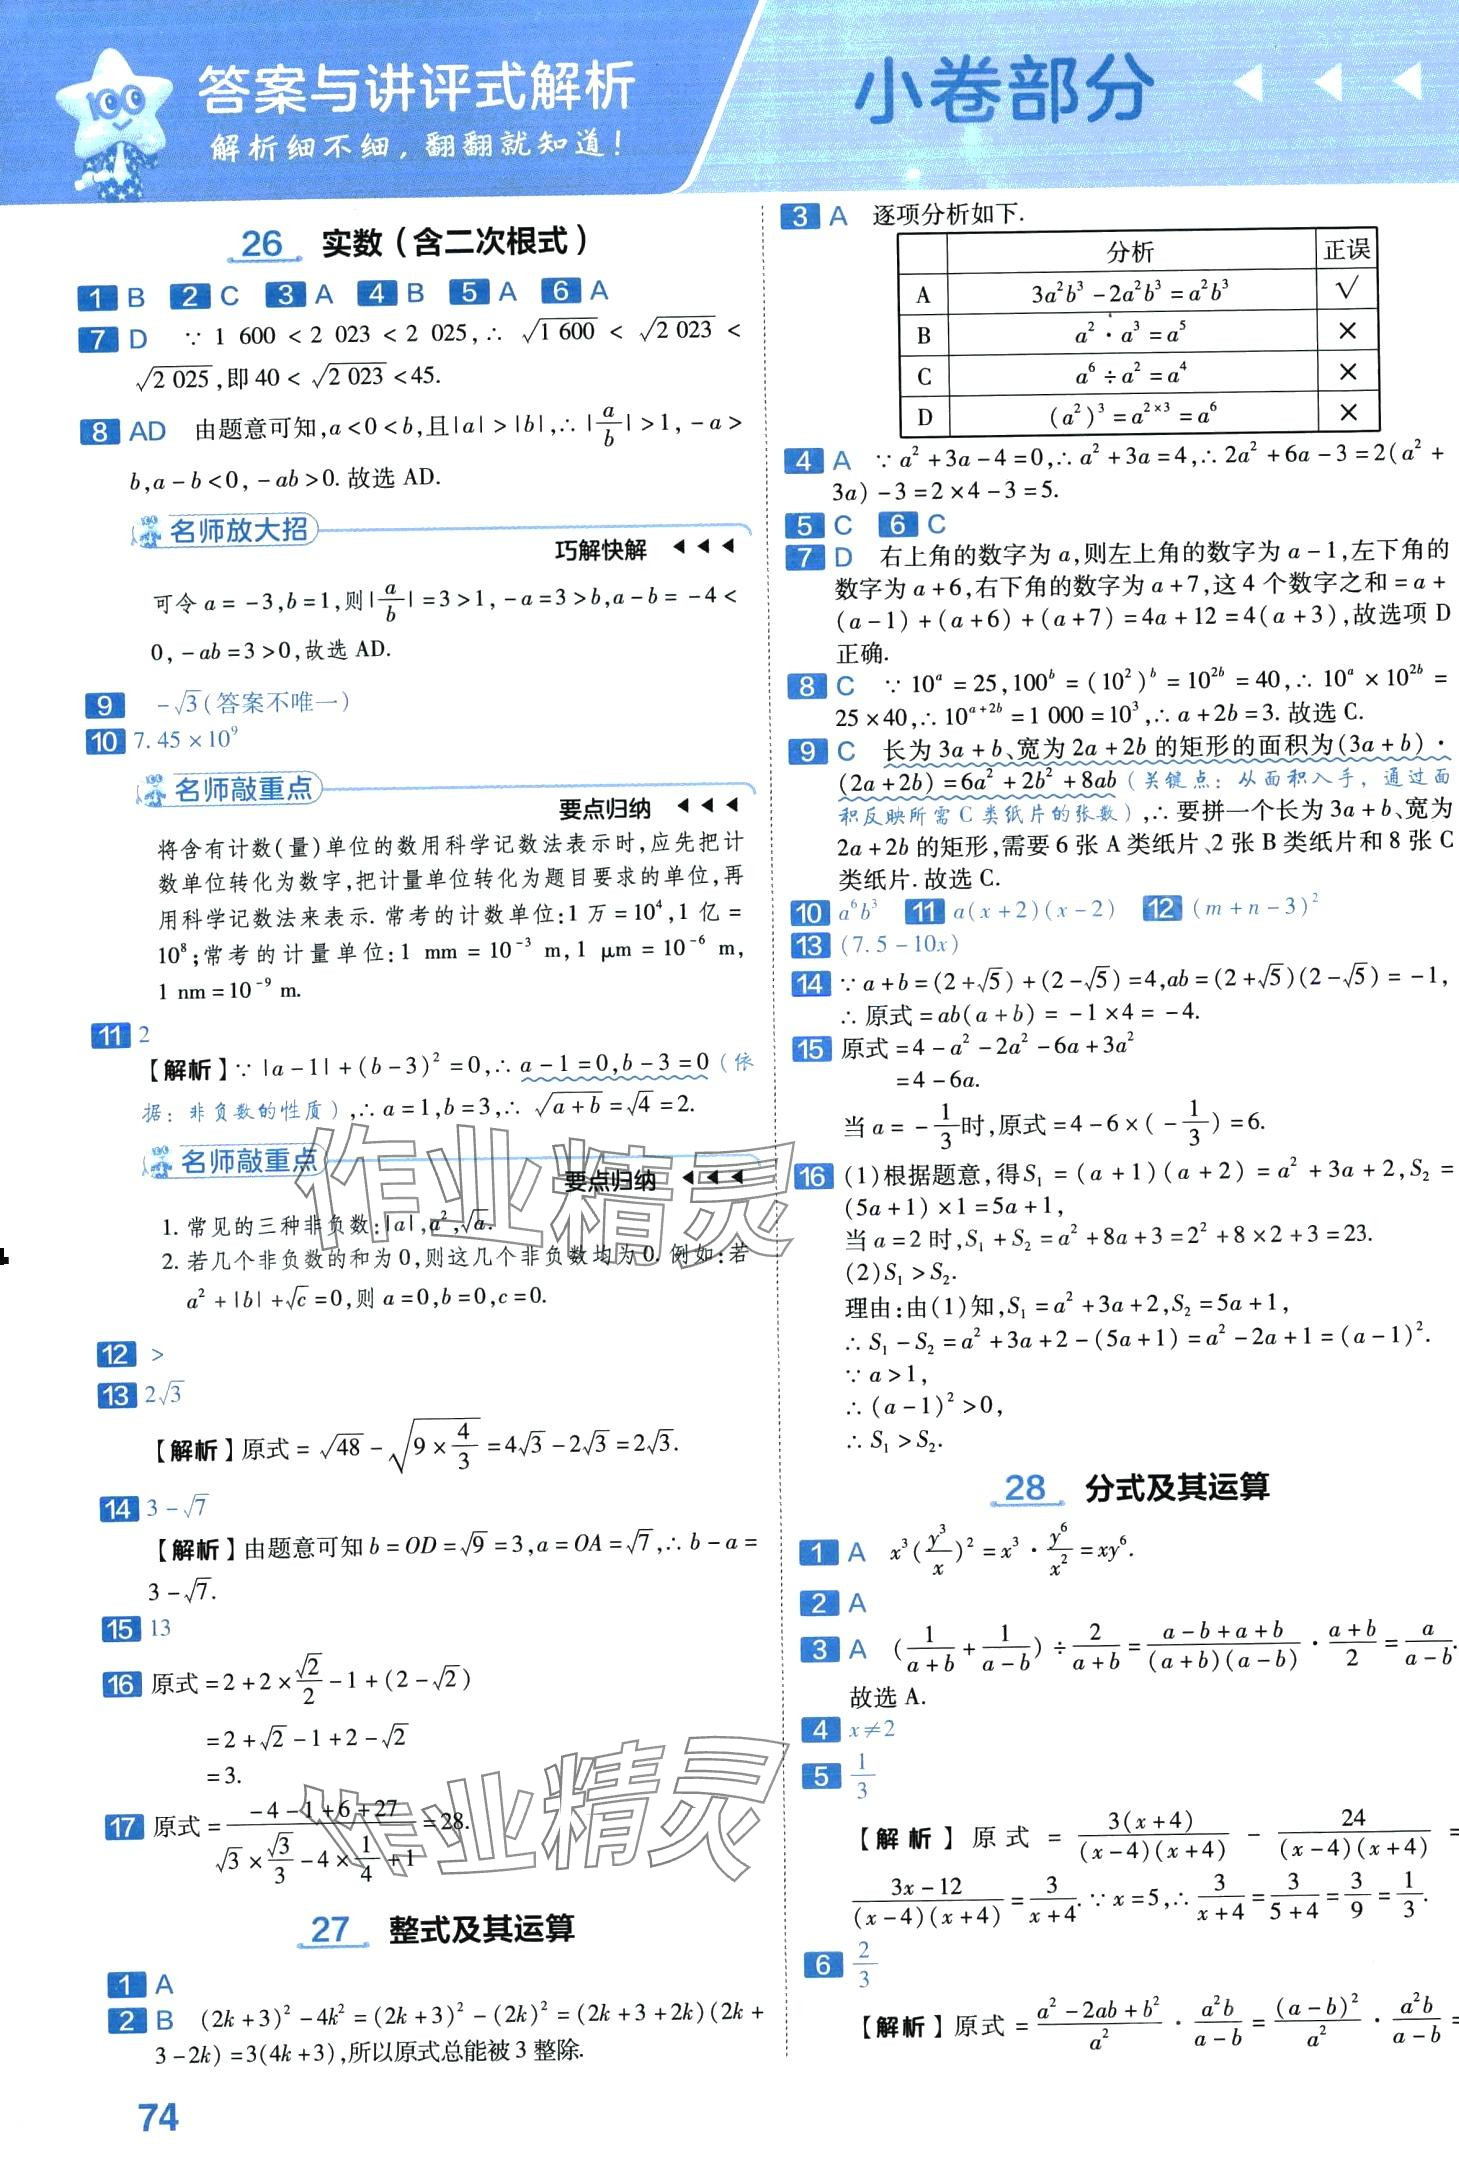 答案与讲评式解析
解析细不细，翻翻就知道！
小卷部分
26 实数（含二次根式）
1 B 2 C 3 A 4 B 5 A 6 A
7 D ∵ 1 600 < 2 023 < 2 025,∴ √1 600 < √2 023 <
√2 025,即 40 < √2 023 <45.
8 AD 由题意可知,a<0<b,且|a|>|b|,∴|a/b|>1,-a>
b,a-b<0,-ab>0.故选 AD.
名师放大招
巧解快解
可令 a=-3,b=1,则|a/b|=3>1,-a=3>b,a-b=-4<
0,-ab=3>0,故选 AD.
9 -√3(答案不唯一)
10 7.45×10⁹
名师敲重点
要点归纳
将含有计数(量)单位的数用科学记数法表示时,应先把计
数单位转化为数字,把计量单位转化为题目要求的单位,再
用科学记数法来表示.常考的计数单位:1 万=10⁴,1 亿=
10⁸;常考的计量单位:1 mm=10⁻³ m,1 μm=10⁻⁶ m,
1 nm=10⁻⁹ m.
11 2
【解析】∵|a-1|+(b-3)²=0,∴a-1=0,b-3=0(依
据：非负数的性质),∴a=1,b=3,∴√a+b=√4=2.
名师敲重点
要点归纳
1.常见的三种非负数:|a|,a²,√a.
2.若几个非负数的和为 0,则这几个非负数均为 0.例如:若
a²+|b|+√c=0,则 a=0,b=0,c=0.
12 >
13 2√3
【解析】原式=√48-√(9×4/3)=4√3-2√3=2√3.
14 3-√7
【解析】由题意可知 b=OD=√9=3,a=OA=√7,∴b-a=
3-√7.
15 13
16 原式=2+2×√2/2-1+(2-√2)
=2+√2-1+2-√2
=3.
17 原式=(-4-1+6+27)/(√3×√3/3-4×1/4+1)=28.
27 整式及其运算
1 A
2 B (2k+3)²-4k²=(2k+3)²-(2k)²=(2k+3+2k)(2k+
3-2k)=3(4k+3),所以原式总能被 3 整除.
74
3 A 逐项分析如下.
分析 正误
A 3a²b³-2a²b³=a²b³ √
B a²·a³=a⁵ ×
C a⁶÷a²=a⁴ ×
D (a²)³=a²ˣ³=a⁶ ×
4 A ∵a²+3a-4=0,∴a²+3a=4,∴2a²+6a-3=2(a²+
3a)-3=2×4-3=5.
5 C 6 C
7 D 右上角的数字为 a,则左上角的数字为 a-1,左下角的
数字为 a+6,右下角的数字为 a+7,这 4 个数字之和=a+
(a-1)+(a+6)+(a+7)=4a+12=4(a+3),故选项 D
正确.
8 C ∵10ᵃ=25,100ᵇ=(10²)ᵇ=10²ᵇ=40,∴10ᵃ×10²ᵇ=
25×40,∴10ᵃ⁺²ᵇ=1 000=10³,∴a+2b=3.故选 C.
9 C 长为 3a+b、宽为 2a+2b 的矩形的面积为(3a+b)·
(2a+2b)=6a²+2b²+8ab(关键点：从面积入手，通过面
积反映所需 C 类纸片的张数),∴要拼一个长为 3a+b、宽为
2a+2b 的矩形,需要 6 张 A 类纸片、2 张 B 类纸片和 8 张 C
类纸片.故选 C.
10 a⁶b³ 11 a(x+2)(x-2) 12 (m+n-3)²
13 (7.5-10x)
14 ∵a+b=(2+√5)+(2-√5)=4,ab=(2+√5)(2-√5)=-1,
∴原式=ab(a+b)=-1×4=-4.
15 原式=4-a²-2a²-6a+3a²
=4-6a.
当 a=-1/3时,原式=4-6×(-1/3)=6.
16 (1)根据题意,得S₁=(a+1)(a+2)=a²+3a+2,S₂=
(5a+1)×1=5a+1,
当 a=2 时,S₁+S₂=a²+8a+3=2²+8×2+3=23.
(2)S₁>S₂.
理由:由(1)知,S₁=a²+3a+2,S₂=5a+1,
∴S₁-S₂=a²+3a+2-(5a+1)=a²-2a+1=(a-1)².
∵a>1,
∴(a-1)²>0,
∴S₁>S₂.
28 分式及其运算
1 A x³(y³/x)²=x³·y⁶/x²=xy⁶.
2 A
3 A (1/(a+b)+1/(a-b))÷2/(a+b)=(a-b+a+b)/((a+b)(a-b))·(a+b)/2=a/(a-b).
故选 A.
4 x≠2
5 1/3
【解析】原式=3(x+4)/((x-4)(x+4))-24/((x-4)(x+4))=
(3x-12)/((x-4)(x+4))=3/(x+4).∵x=5,∴3/(x+4)=3/(5+4)=3/9=1/3.
6 2/3
【解析】原式=(a²-2ab+b²)/a²·a²b/(a-b)=(a-b)²/a²·a²b/(a-b)=
作业精灵
作业精灵